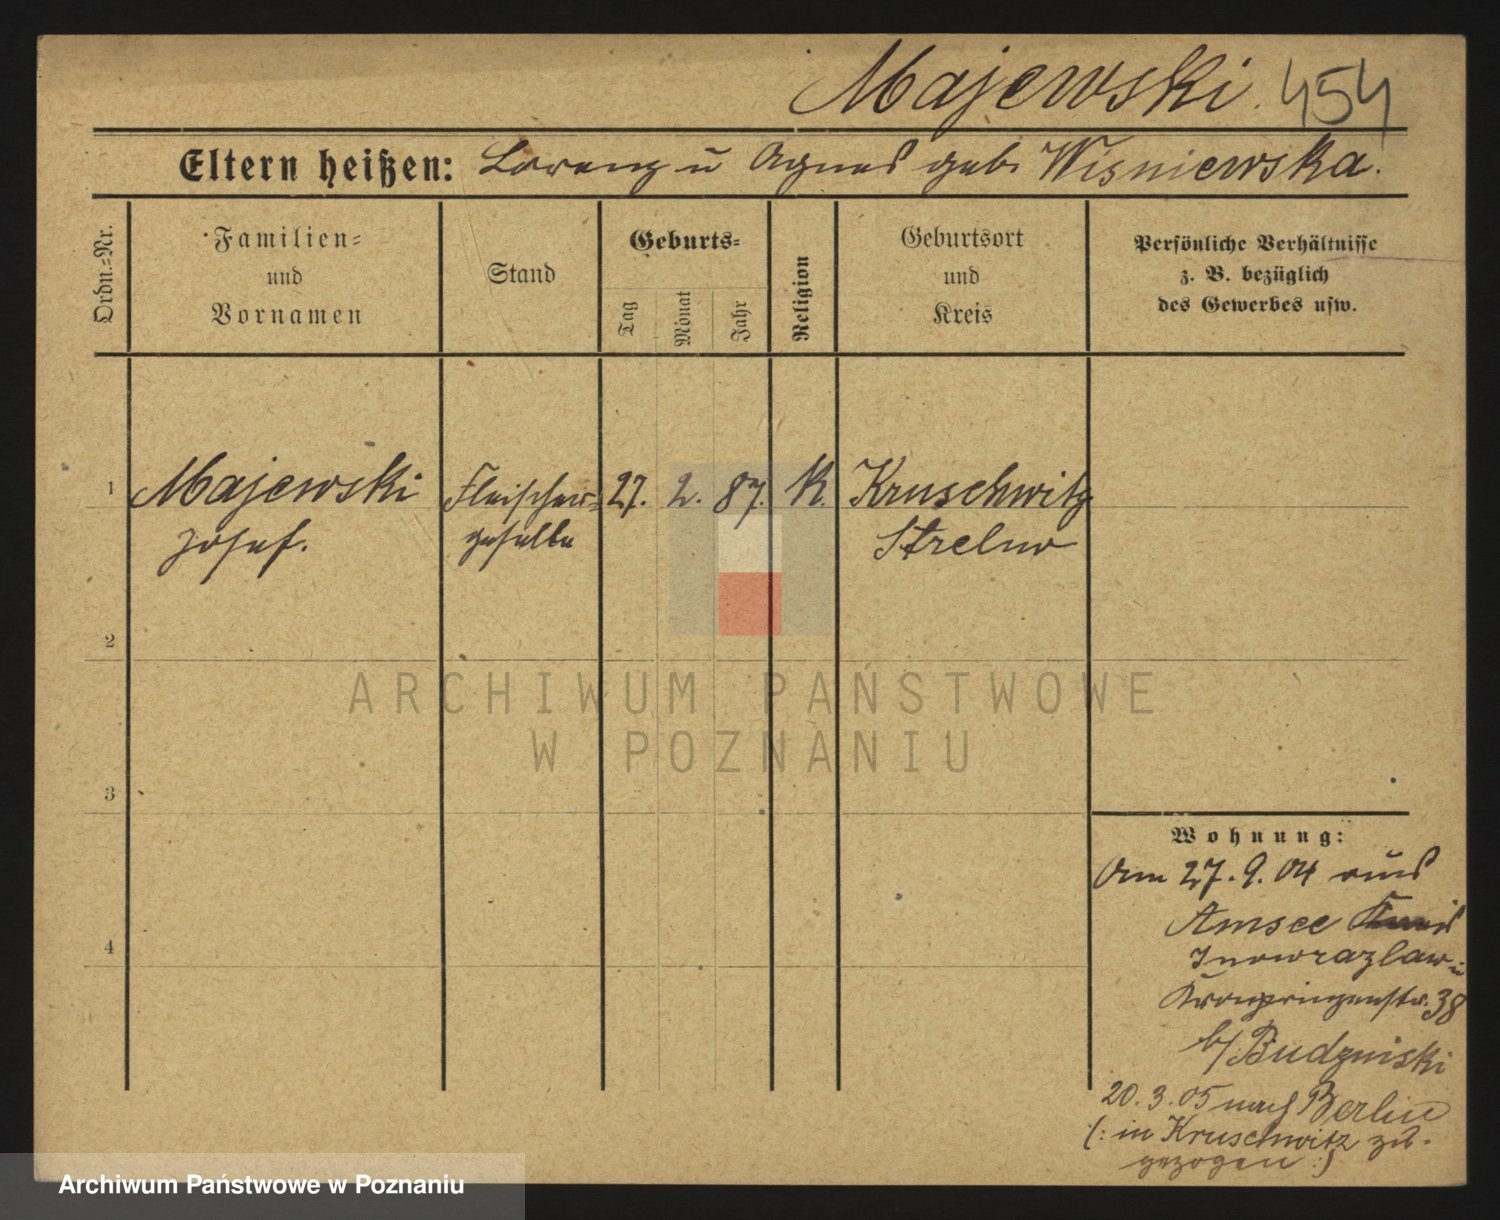 Majewski. 454
Eltern heißen: Lorenz u Agnes geb. Wisniewska.
Ordn.-Nr.
Familien-
und
Vornamen
Stand
Geburts-
Tag
Monat
Jahr
Religion
Geburtsort
und
Kreis
Persönliche Verhältnisse
z. B. bezüglich
des Gewerbes usw.
1 Majewski Fleischer- 27. 2. 87. K. Kruschwitz
Josef. geselle Strelno
2
3
4
ARCHIWUM PAŃSTWOWE
W POZNANIU
Wohnung:
Am 27. 9. 04 aus
Amsee
Inowrazlaw
Kronprinzenstr. 38
b/ Budzinski
20. 3. 05 nach Berlin
(: in Kruschwitz zu-
gezogen :)
Archiwum Państwowe w Poznaniu